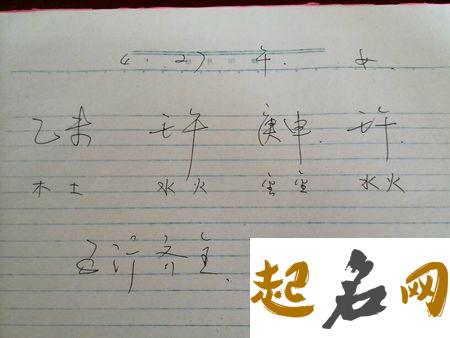 4. 27 午. 女
乙未 壬午 庚申. 壬午.
木 土 水 火 金 金 水 火
五行齐全.
起名网